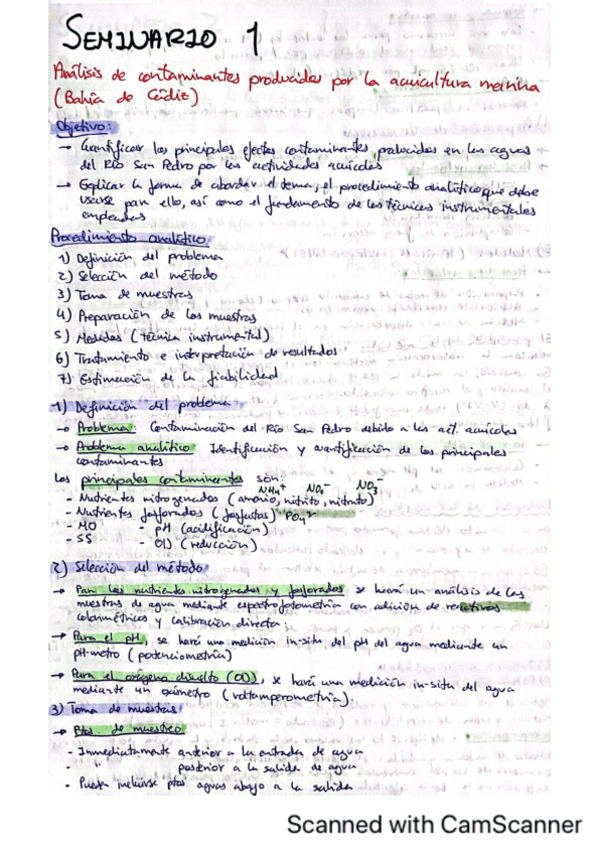 SEMINARIO 1
Análisis de contaminantes producidos por la acuicultura marina
(Bahía de Cádiz)
Objetivo:
→ Cuantificar los principales efectos contaminantes producidos en las aguas
del Río San Pedro por las actividades acuícolas
→ Explicar la forma de abordar el tema, el procedimiento analítico que debe
usarse para ello, así como el fundamento de las técnicas instrumentales
empleadas
Procedimiento analítico:
1) Definición del problema
2) Selección del método
3) Toma de muestras
4) Preparación de las muestras
5) Medidas (técnica instrumental)
6) Tratamiento e interpretación de resultados
7) Estimación de la fiabilidad
1) Definición del problema
→ Problema: Contaminación del Río San Pedro debido a las act. acuícolas
→ Problema analítico: Identificación y cuantificación de los principales
contaminantes
Los principales contaminantes son:
NH4+ NO2- NO3-
- Nutrientes nitrogenados (amonio, nitrito, nitrato)
- Nutrientes fosforados (fosfatos) PO4
- MO - pH (acidificación)
- SS - OD (reducción)
2) Selección del método
→ Para los nutrientes nitrogenados y fosforados se hará un análisis de las
muestras de agua mediante espectrofotometría con adición de reactivos
colorimétricos y calibración directa
→ Para el pH, se hará una medición in-situ del pH del agua mediante un
pH-metro (potenciometría)
→ Para el oxígeno disuelto (OD), se hará una medición in-situ del agua
mediante un oxímetro (voltamperometría)
3) Toma de muestras
→ Ptos. de muestreo
- Inmediatamente anterior a la entrada de agua
- " posterior a la salida de agua
- Pueden incluirse ptos aguas abajo a la salida
Scanned with CamScanner